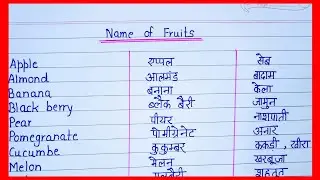 Name of Fruits
Apple एप्पल सेब
Almond आलमंड बादाम
Banana बनाना केला
Black berry ब्लैक बैरी जामुन
Pear पीयर नाशपाती
Pomegranate पोमीग्रेनेट अनार
Cucumbe कुकुम्बर ककडी, खीरा
Melon मेलन खरबूजा
शहतूत